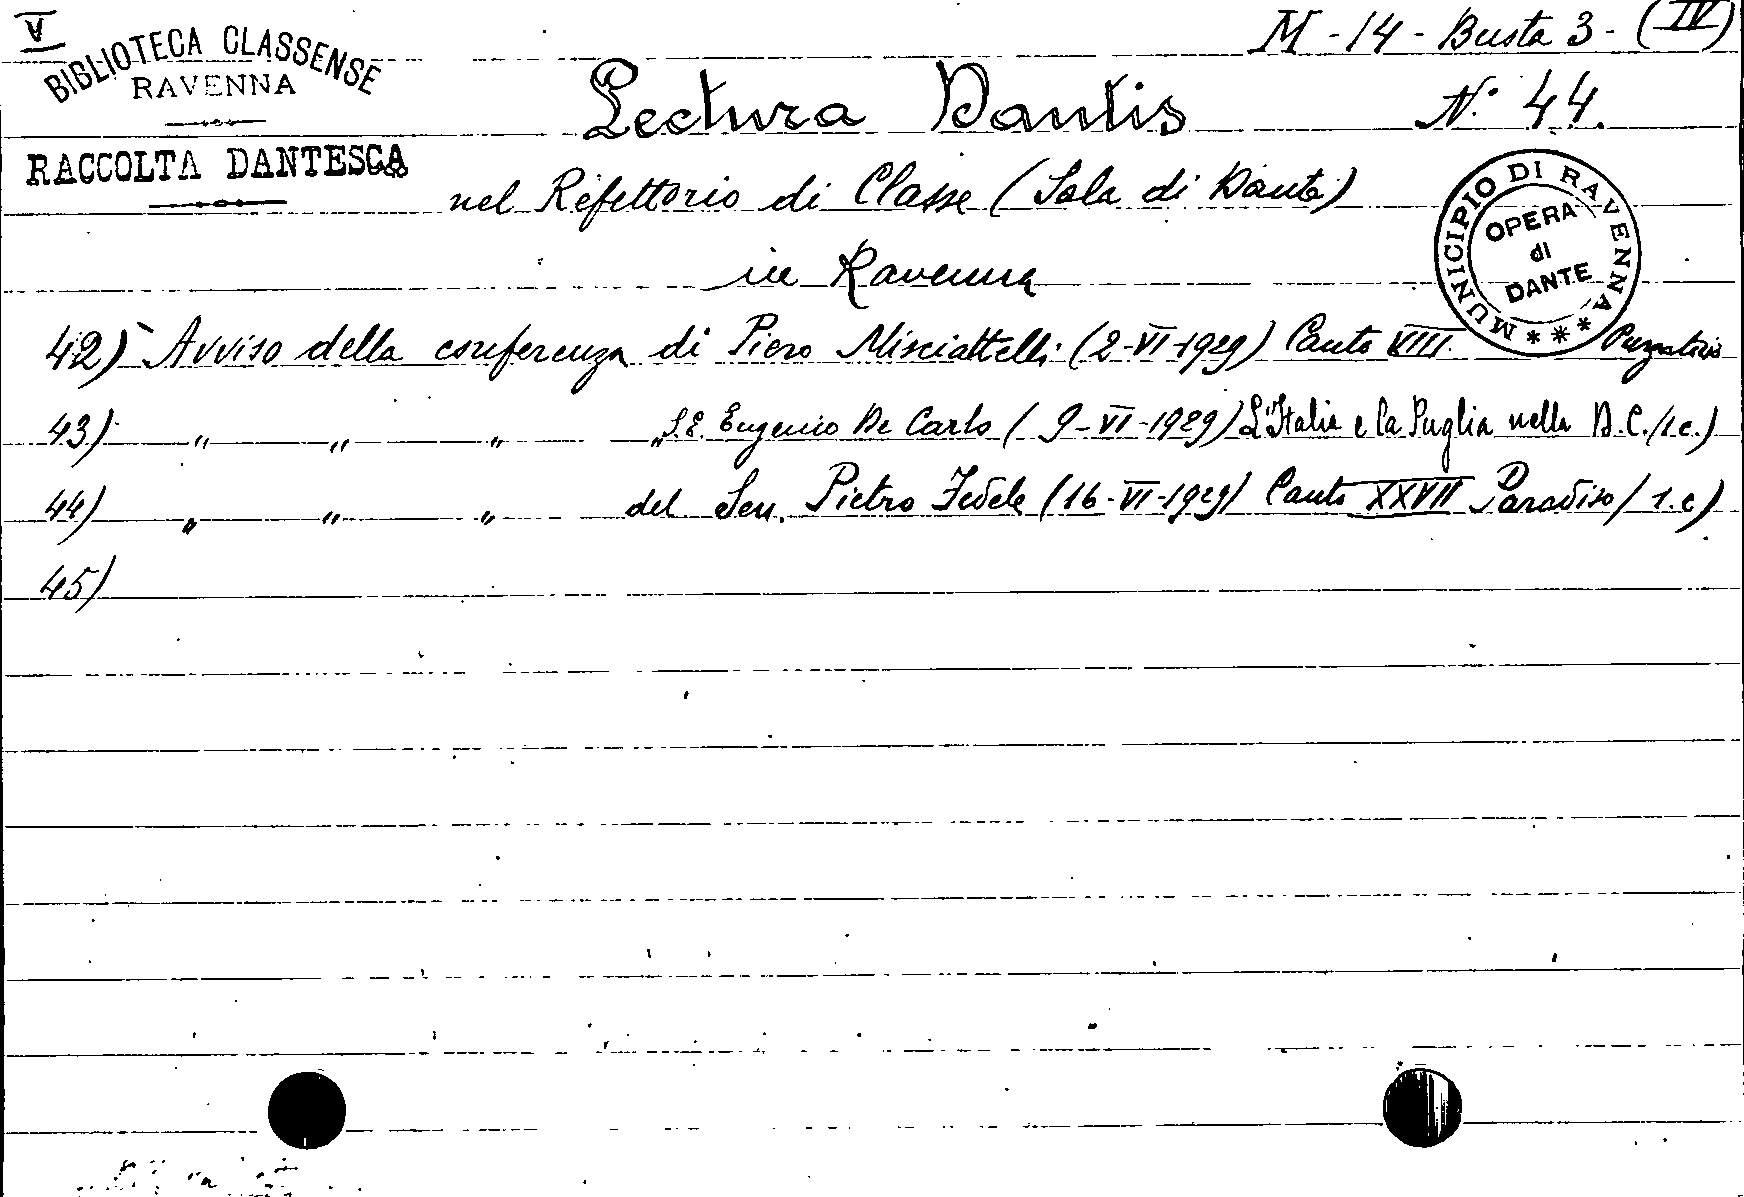 V
BIBLIOTECA CLASSENSE
RAVENNA
RACCOLTA DANTESCA
M - 14 - Busta 3 - (IV)
N. 44.
Lectura Dantis
nel Refettorio di Classe (Sala di Dante)
in Ravenna
MUNICIPIO DI RAVENNA ***
OPERA
di
DANTE
42) Avviso della conferenza di Piero Misciattelli (2-VI-1929) Canto VIII Purgatorio
43) " " " " S.E. Eugenio De Carlo (9-VI-1929) L'Italia e la Puglia nella D.C. (1 c.)
44) " " " del Sen. Pietro Fedele (16-VI-1929) Canto XXVII Paradiso (1.c)
45)